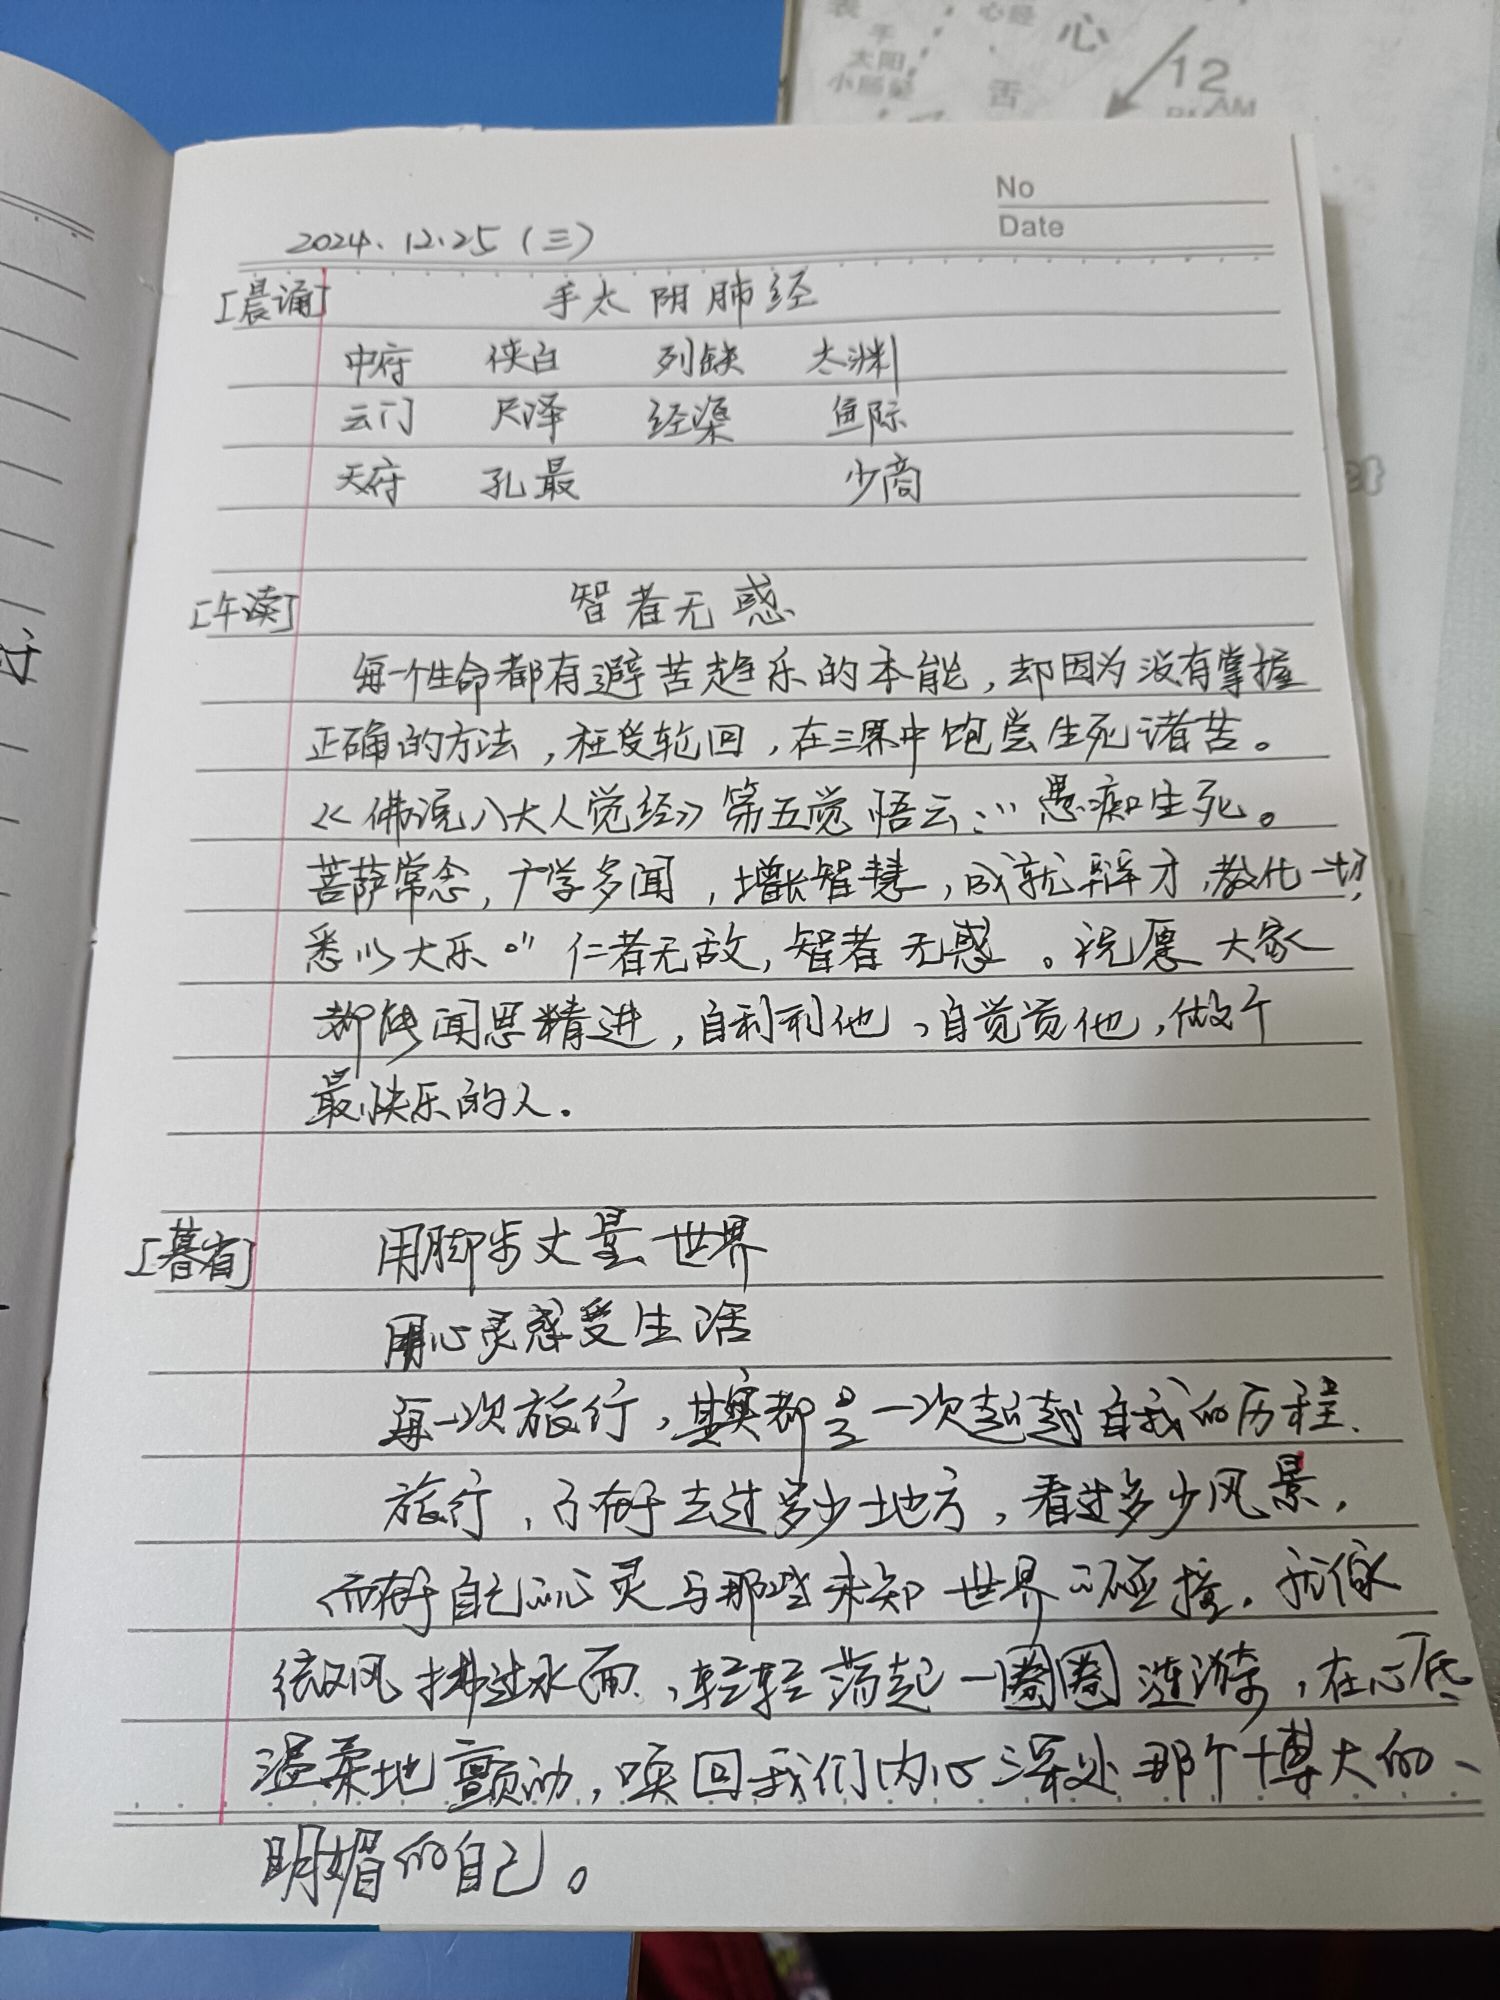 表
手
太阳
小肠经
心经
心
舌
12
AM
No
Date
2024.12.25(三)
[晨诵] 手太阴肺经
中府 侠白 列缺 太渊
云门 尺泽 经渠 鱼际
天府 孔最 少商
[午读] 智者无惑
每一个性命都有避苦趋乐的本能,却因为没有掌握
正确的方法,枉受轮回,在三界中饱尝生死诸苦。
《佛说八大人觉经》第五觉悟云:“愚痴生死。
菩萨常念,广学多闻,增长智慧,成就辩才,教化一切,
悉以大乐。”仁者无敌,智者无惑。祝愿大家
都能闻思精进,自利利他,自觉觉他,做个
最快乐的人.
[暮省] 用脚步丈量世界
用心灵感受生活
每一次旅行,其实都是一次超越自我的历程.
旅行,不在于去过多少地方,看过多少风景,
而在于自己的心灵与那些未知世界的碰撞.就像
微风拂过水面,轻轻荡起一圈圈涟漪,在心底
温柔地颤动,唤回我们内心深处那个博大的、
明媚的自己。